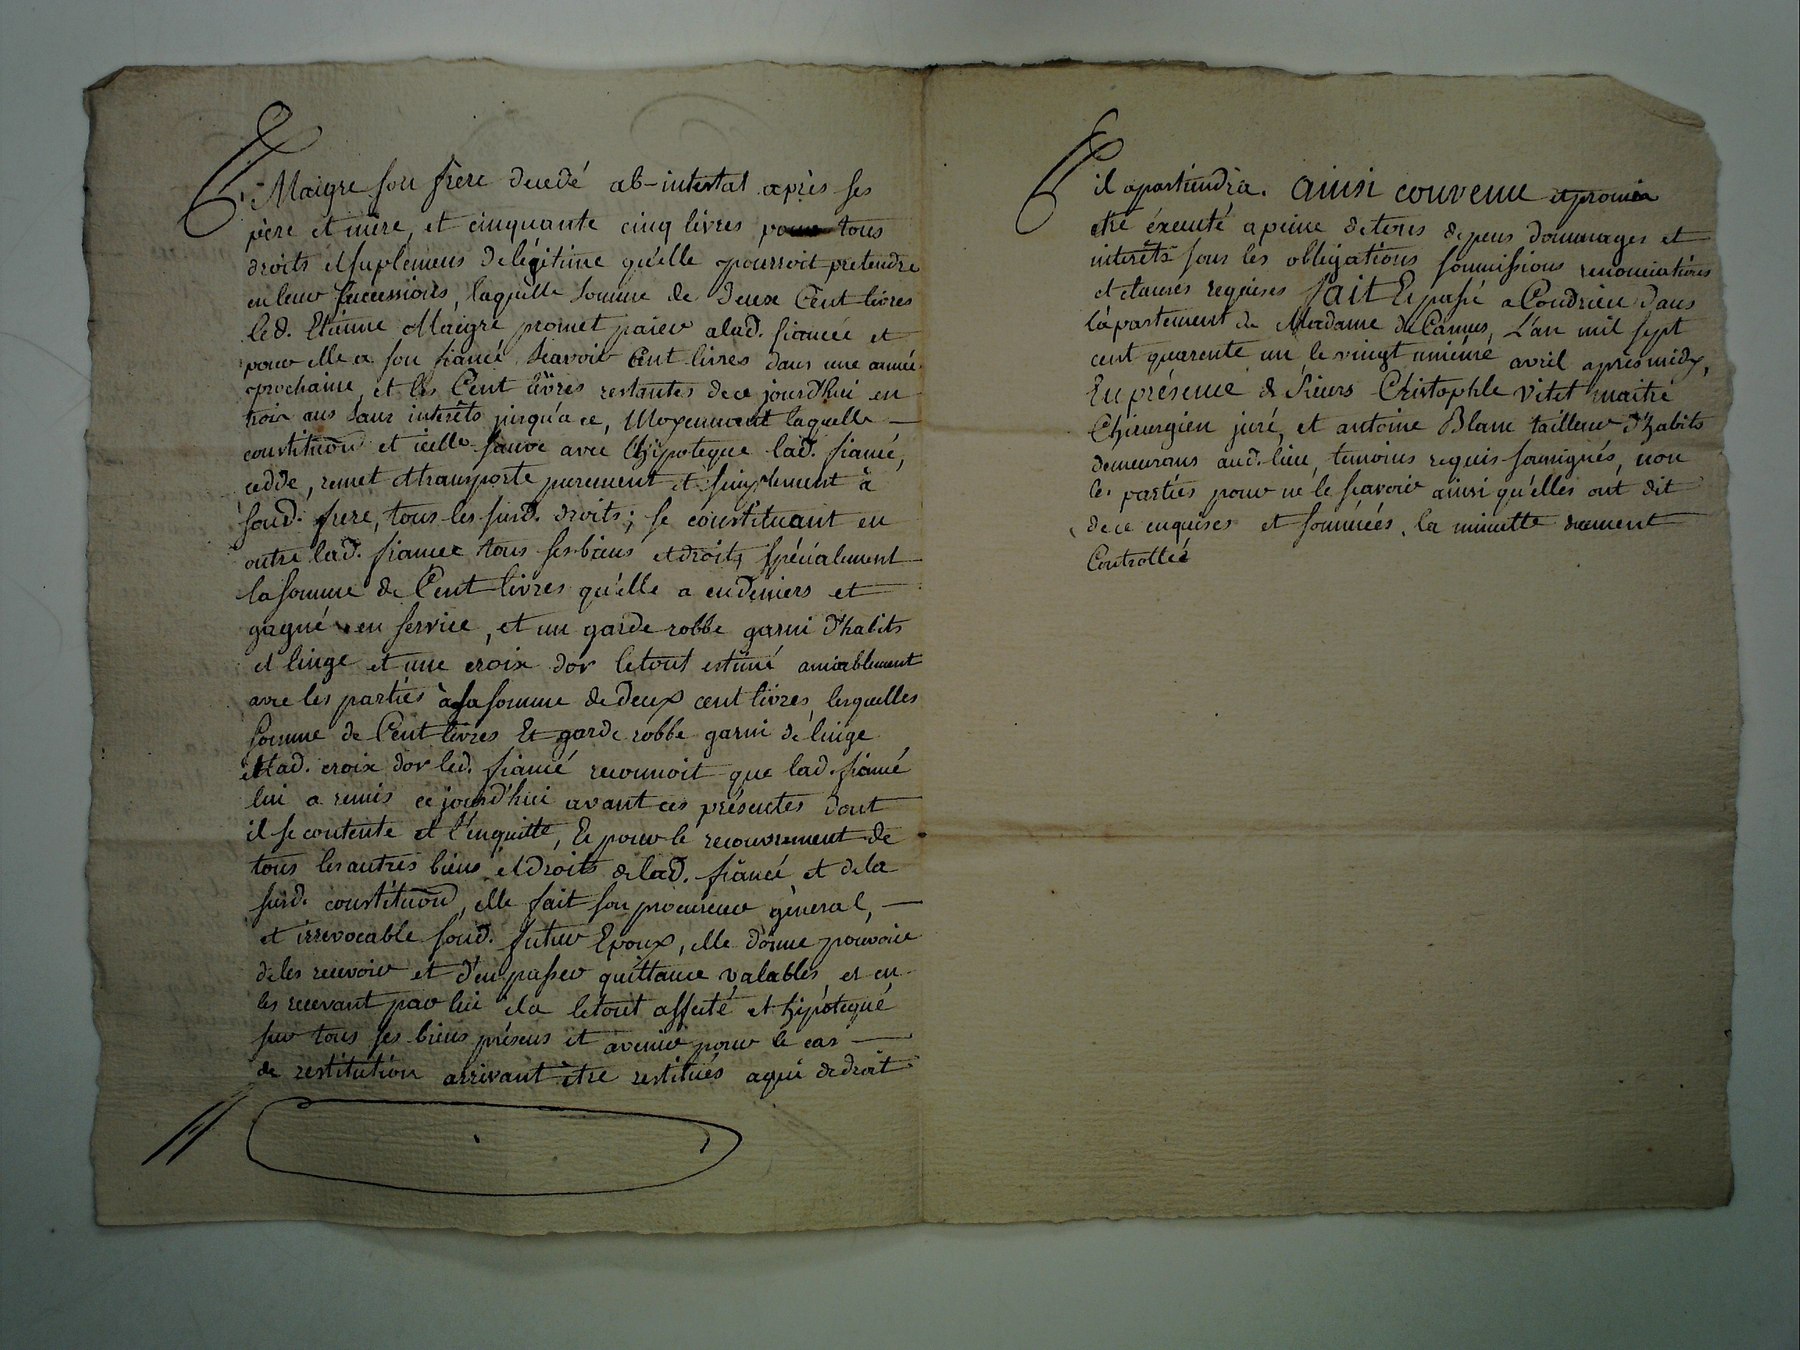 Maigre son frere decedé ab-intestat après ses
père et mère, et cinquante cinq livres pour tous
droits et suplemens delégitime qu'elle pourroit pretendre
en leur successions, laquelle somme de deux Cent livres
led. Etiénne Maigre promet paier a lad. fiancée et
pour elle a son fiancé, scavoir Cent livres dans une année
prochaine, et les Cent livres restantes dece jourd'hui en
trois ans sans interêts jusqu'a ce, Moyennant laquelle
constitution et icelle sauve avec l'hipoteque lad. fiancé,
cedde, remet et transporte purement et simplement à
soud. frere, tous les susd. droits; se constituant en
outre lad. fiancee tous ses biens et droits, spécialement
la somme de Cent livres qu'elle a en deniers et
gagné en service, et un garde robbe garni d'habits
et linge et une croix dor le tout estimé amiablement
avec les parties à la somme de deux cent livres, lesquelles
somme de Cent livres Et garde robbe garni de linge
et lad. croix dor led. fiancé reconnoit que lad. fiancé
lui a remis ce jourd'hui avant ces présentes dont
il se contente et l'enquitte, Et pour le recouvrement de
tous les autres biens et droits de lad. fiancé et de la
susd. constitution, elle fait son procureur général,
et irrevocable soud. futur Epoux, elle donne pouvoir
de les recevoir et d'en passer quittance valables, et en
les recevant par lui il a le tout affecté et hipotequé
sur tous ses biens présens et avenir pour le cas
de restitution arrivant être restitués a qui de droit
il apartiendra. ainsi convenu et promis
etre éxecuté a peine de tous depens dommages et
interêts sous les obligations soumissions renonciations
et clauses requises fait Et passé a Condrieu dans
l'apartement de Madame de Cannus, L'an mil sept
cent quarente un le vingt unieme avril après midy,
En présence de sieurs Christophle Vitet maitre
Chirurgien juré, et antoine Blanc tailleur d'habits
demeurans aud. lieu, temoins requis soussignés, non
les parties pour ne le scavoir ainsi qu'elles ont dit
de ce enquises et sommées. la minutte duement
Controllée